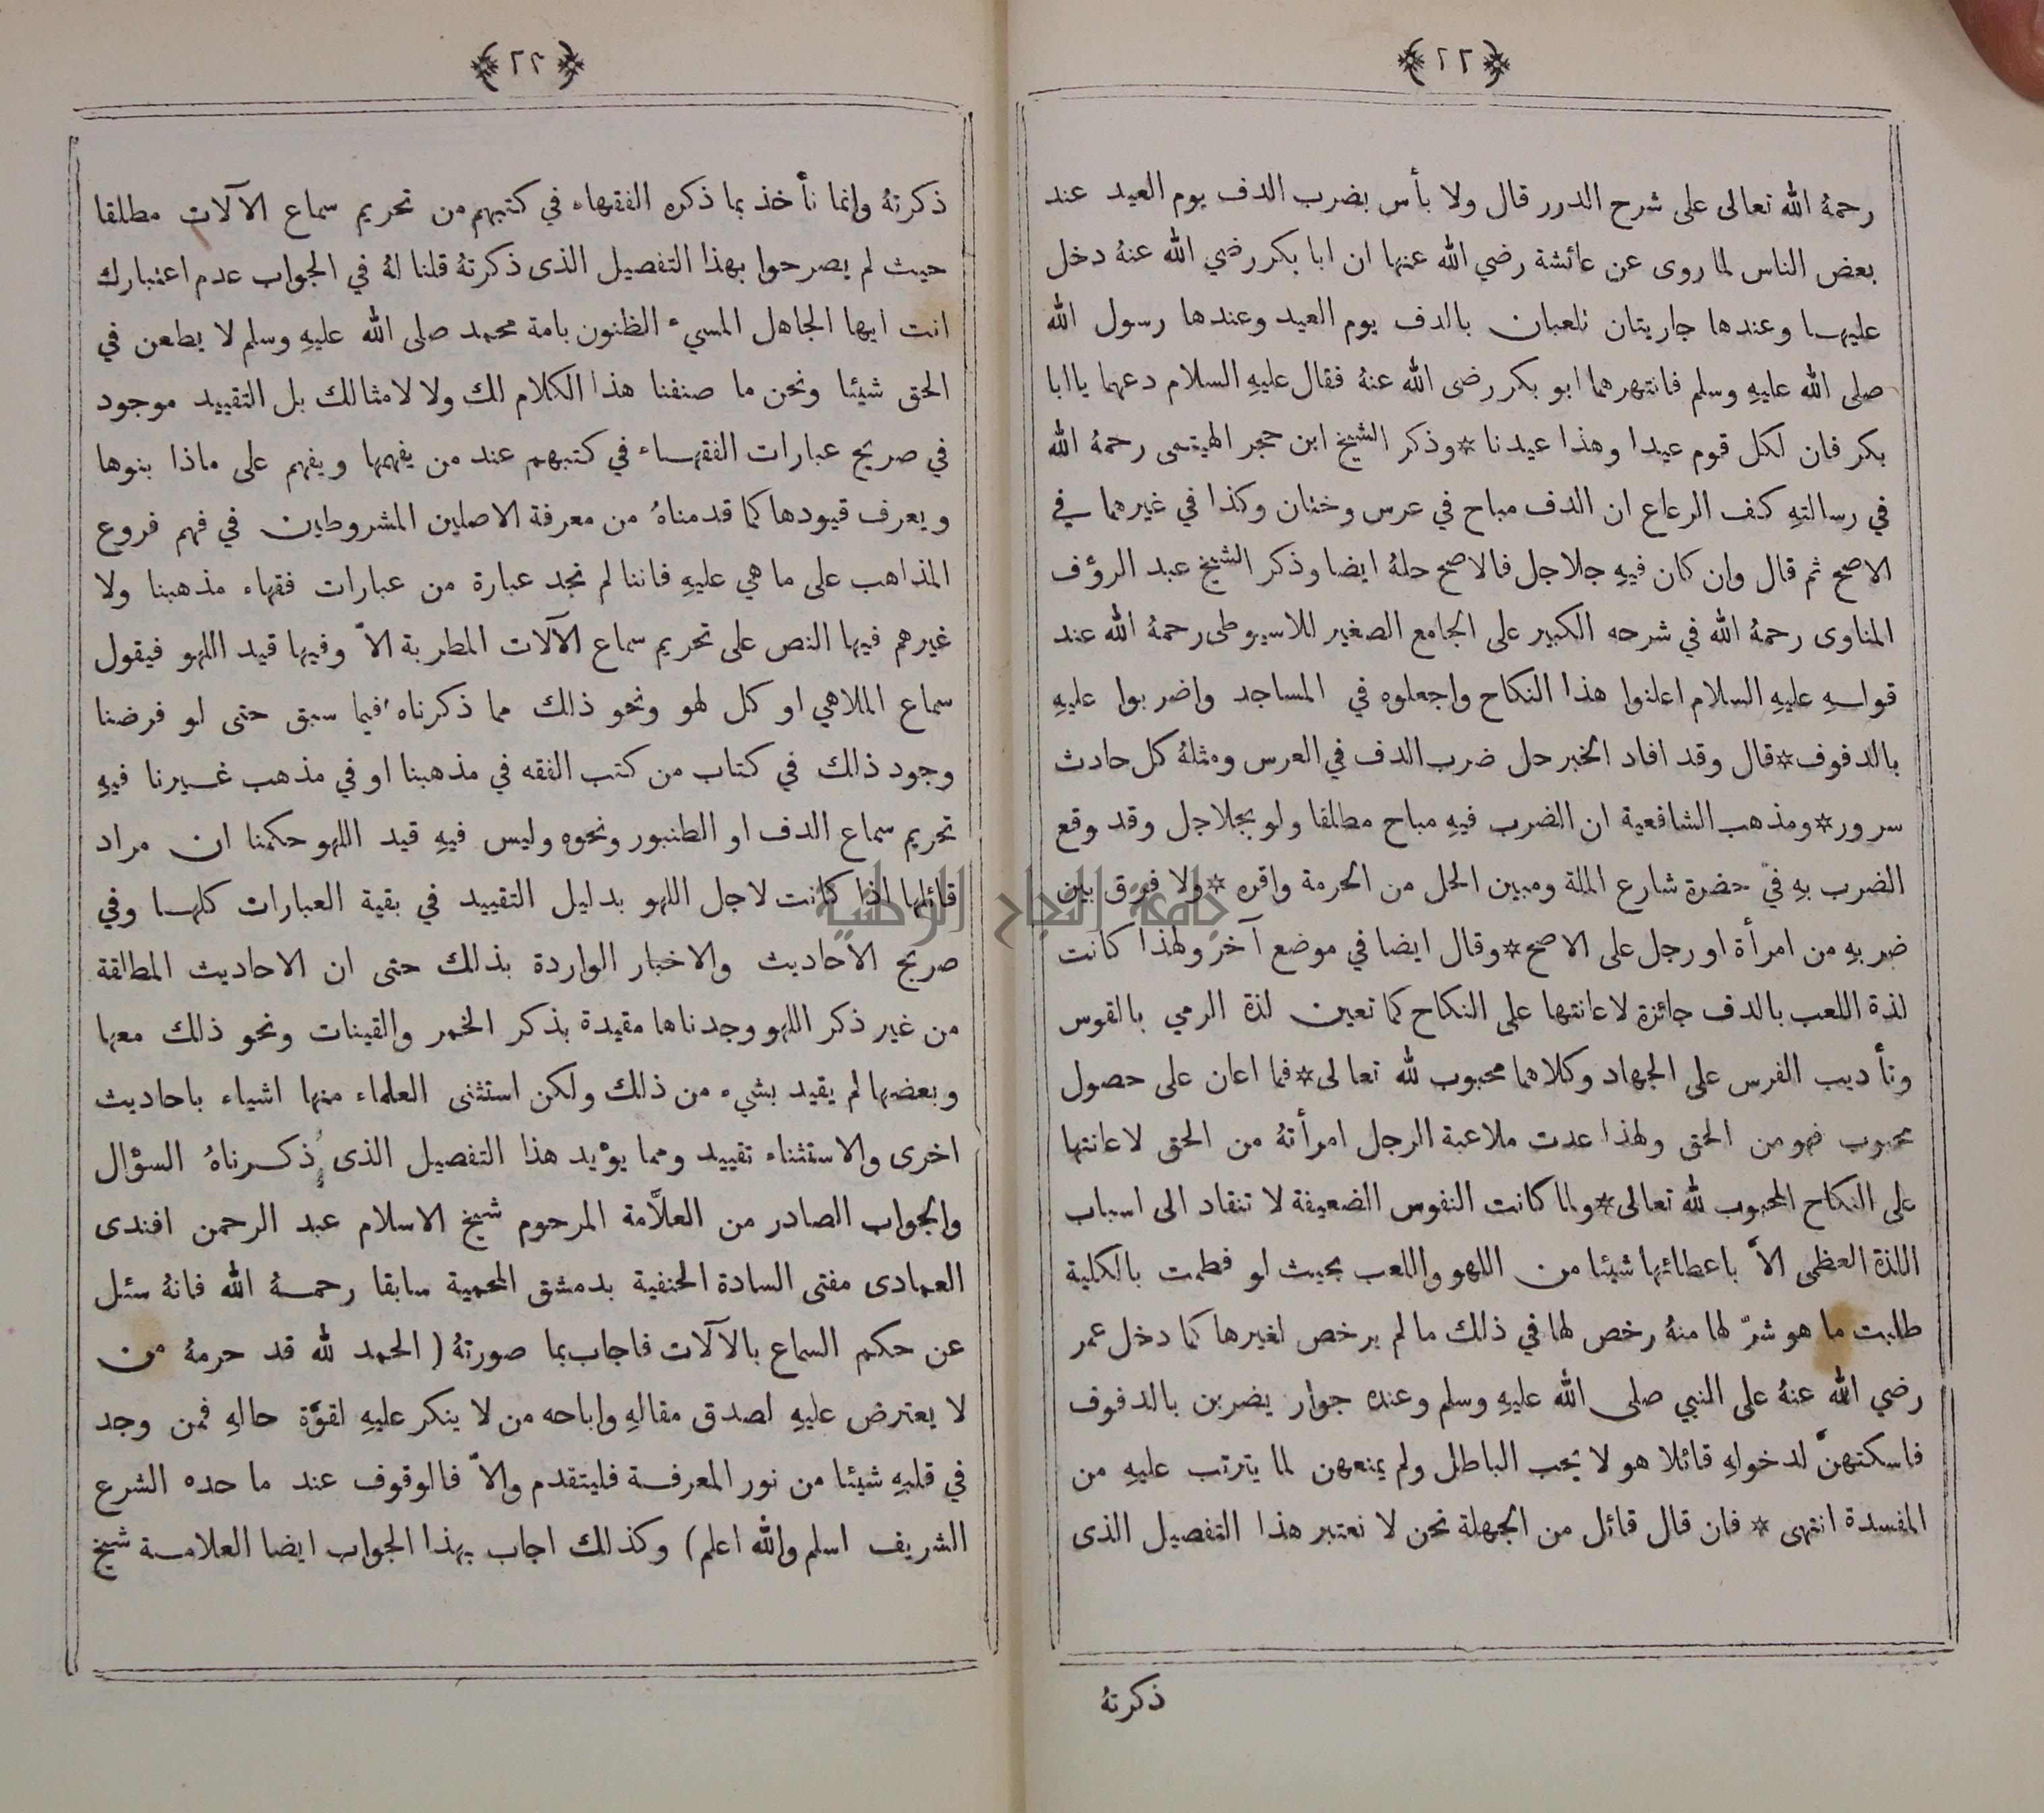 ﴿٢٢﴾
رحمهُ الله تعالى على شرح الدرر قال ولا بأس بضرب الدف يوم العيد عند
بعض الناس لما روى عن عائشة رضي الله عنها ان ابا بكر رضي الله عنهُ دخل
عليهـا وعندها جاريتان تلعبان بالدف يوم العيد وعندها رسول الله
صلى الله عليهِ وسلم فانتهرهما ابو بكر رضى الله عنهُ فقال عليهِ السلام دعهما يا ابا
بكر فان لكل قوم عيدا وهذا عيدنا * وذكر الشيخ ابن حجر الهيتمى رحمهُ الله
في رسالتهِ كف الرعاع ان الدف مباح في عرس وختان وكذا في غيرهما في
الاصح ثم قال وان كان فيهِ جلاجل فالاصح حلهُ ايضا وذكر الشيخ عبد الرؤف
المناوى رحمهُ الله في شرحه الكبير على الجامع الصغير للاسيوطى رحمهُ الله عند
قولـهِ عليهِ السلام اعلنوا هذا النكاح واجعلوه في المساجد واضربوا عليهِ
بالدفوف * قال وقد افاد الخبر حل ضرب الدف في العرس ومثلهُ كل حادث
سرور * ومذهب الشافعية ان الضرب فيهِ مباح مطلقا ولو بجلاجل وقد وقع
الضرب بهِ في حضرة شارع الملة ومبين الحل من الحرمة واقره * ولا فرق بين
ضربهِ من امرأة او رجل على الاصح * وقال ايضا في موضع آخر ولهذا كانت
لذة اللعب بالدف جائزة لاعانتها على النكاح كما تعين لذة الرمي بالقوس
وتأديب الفرس على الجهاد وكلاهما محبوب لله تعالى * فما اعان على حصول
محبوب فهو من الحق ولهذا عدت ملاعبة الرجل امرأتهُ من الحق لاعانتها
على النكاح المحبوب لله تعالى * ولما كانت النفوس الضعيفة لا تنقاد الى اسباب
اللذة العظمى الاّ باعطائها شيئا من اللهو واللعب بحيث لو فطمت بالكلية
طلبت ما هو شرّ لها منهُ رخص لها في ذلك ما لم يرخص لغيرها كما دخل عمر
رضي الله عنهُ على النبي صلى الله عليهِ وسلم وعنده جوار يضربن بالدفوف
فاسكتهنّ لدخولهِ قائلا هو لا يحب الباطل ولم يمنعهن لما يترتب عليهِ من
المفسدة انتهى * فان قال قائل من الجهلة نحن لا نعتبر هذا التفصيل الذى
ذكرتهُ
﴿٢٣﴾
ذكرتهُ وانما نأخذ بما ذكره الفقهاء في كتبهم من تحريم سماع الآلات مطلقا
حيث لم يصرحوا بهذا التفصيل الذى ذكرتهُ قلنا لهُ في الجواب عدم اعتبارك
انت ايها الجاهل المسيء الظنون بامة محمد صلى الله عليهِ وسلم لا يطعن في
الحق شيئا ونحن ما صنفنا هذا الكلام لك ولا لامثالك بل التقييد موجود
في صريح عبارات الفقهـاء في كتبهم عند من يفهمها ويفهم على ماذا بنوها
ويعرف قيودها كما قدمناهُ من معرفة الاصلين المشروطين في فهم فروع
المذاهب على ما هي عليهِ فاننا لم نجد عبارة من عبارات فقهاء مذهبنا ولا
غيرهم فيها النص على تحريم سماع الآلات المطربة الاّ وفيها قيد اللهو فيقول
سماع الملاهي او كل لهو ونحو ذلك مما ذكرناه فيما سبق حتى لو فرضنا
وجود ذلك في كتاب من كتب الفقه في مذهبنا او في مذهب غـيرنا فيهِ
تحريم سماع الدف او الطنبور ونحوه وليس فيهِ قيد اللهو حكمنا ان مراد
قائلها اذا كانت لاجل اللهو بدليل التقييد في بقية العبارات كلهـا وفي
صريح الاحاديث والاخبار الواردة بذلك حتى ان الاحاديث المطلقة
من غير ذكر اللهو وجدناها مقيدة بذكر الخمر والقينات ونحو ذلك معها
وبعضها لم يقيد بشيء من ذلك ولكن استثنى العلماء منها اشياء باحاديث
اخرى والاستثناء تقييد ومما يؤيد هذا التفصيل الذى ذكـرناهُ السؤال
والجواب الصادر من العلاَّمة المرحوم شيخ الاسلام عبد الرحمن افندى
العمادى مفتى السادة الحنفية بدمشق المحمية سابقا رحمـهُ الله فانهُ سئل
عن حكم السماع بالآلات فاجاب بما صورتهُ ( الحمد لله قد حرمهُ من
لا يعترض عليهِ لصدق مقالهِ واباحه من لا ينكر عليهِ لقوّة حالهِ فمن وجد
في قلبهِ شيئا من نور المعرفـة فليتقدم والاّ فالوقوف عند ما حده الشرع
الشريف اسلم والله اعلم) وكذلك اجاب بهذا الجواب ايضا العلامـة شيخ
جامعة النجاح الوطنية